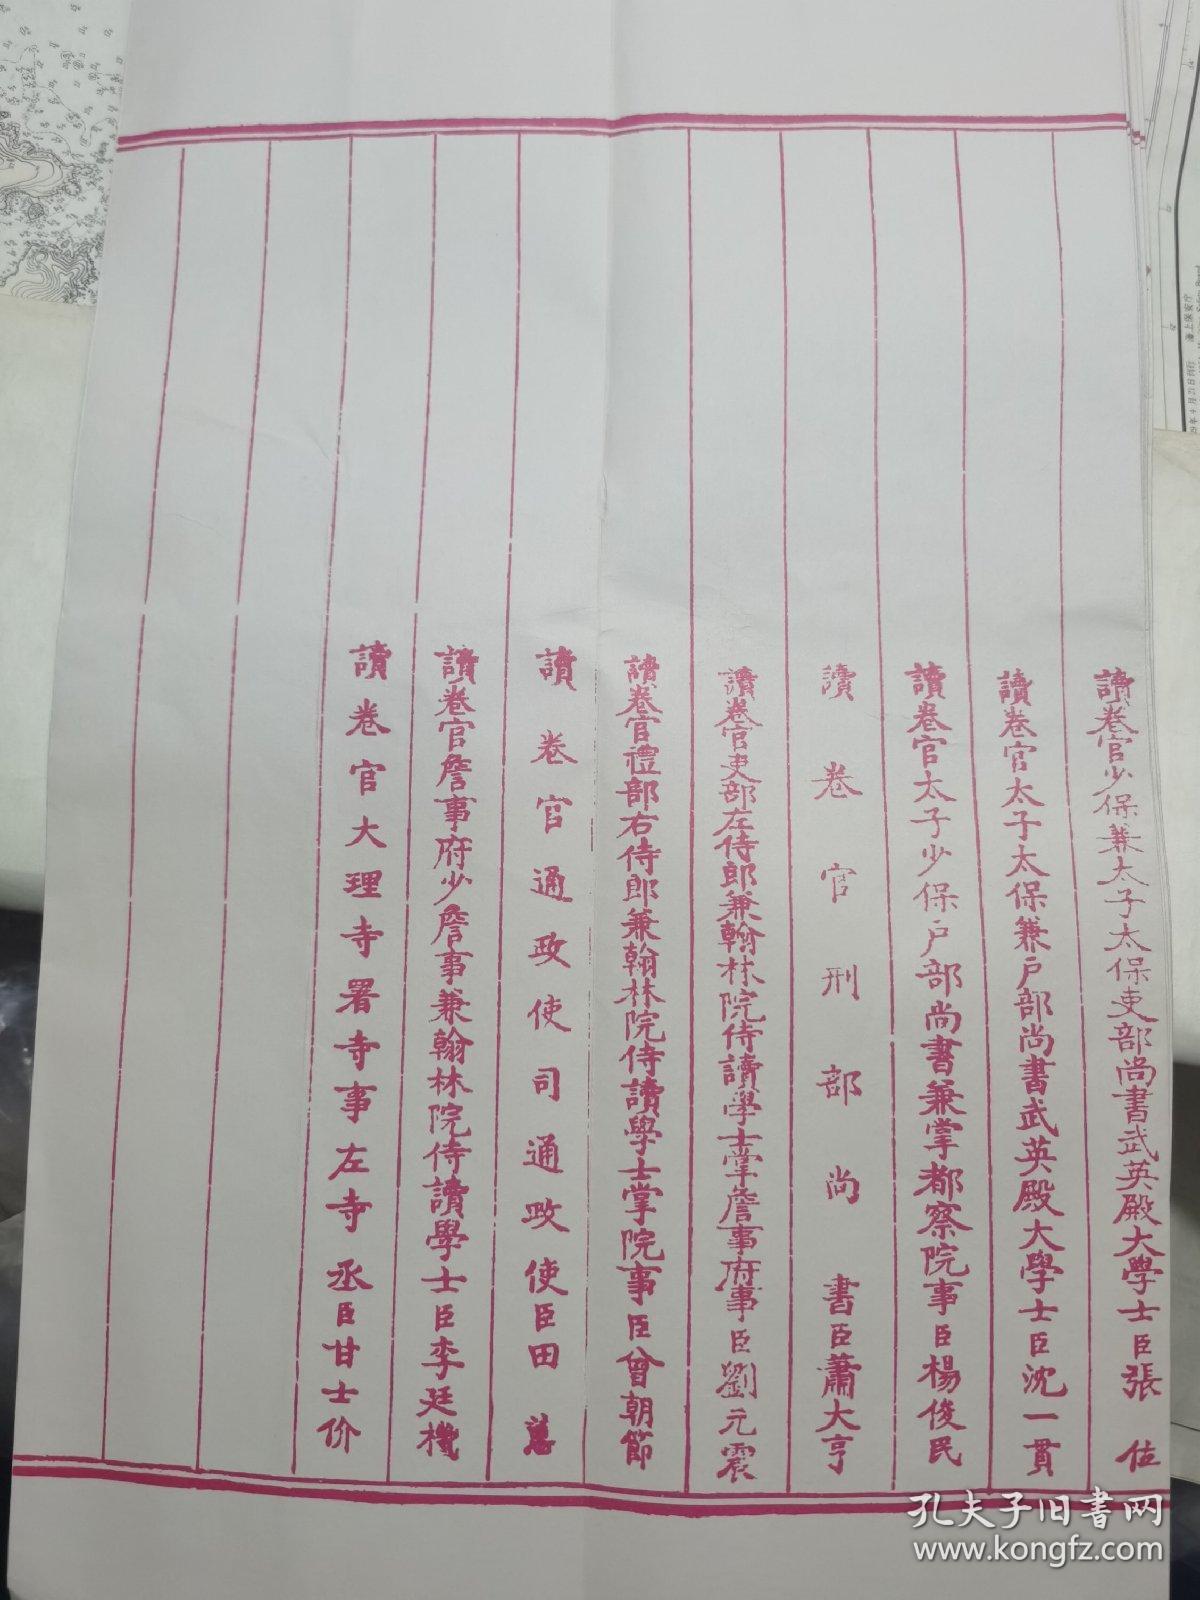 讀卷官少保兼太子太保吏部尚書武英殿大學士臣張位
讀卷官太子太保兼戶部尚書武英殿大學士臣沈一貫
讀卷官太子少保戶部尚書兼掌都察院事臣楊俊民
讀卷官刑部尚書臣蕭大亨
讀卷官吏部左侍郎兼翰林院侍讀學士掌詹事府事臣劉元震
讀卷官禮部右侍郎兼翰林院侍讀學士掌院事臣曾朝節
讀卷官通政使司通政使臣田
讀卷官詹事府少詹事兼翰林院侍讀學士臣李廷機
讀卷官大理寺署寺事左寺丞臣甘士价
孔夫子旧书网
www.kongfz.com